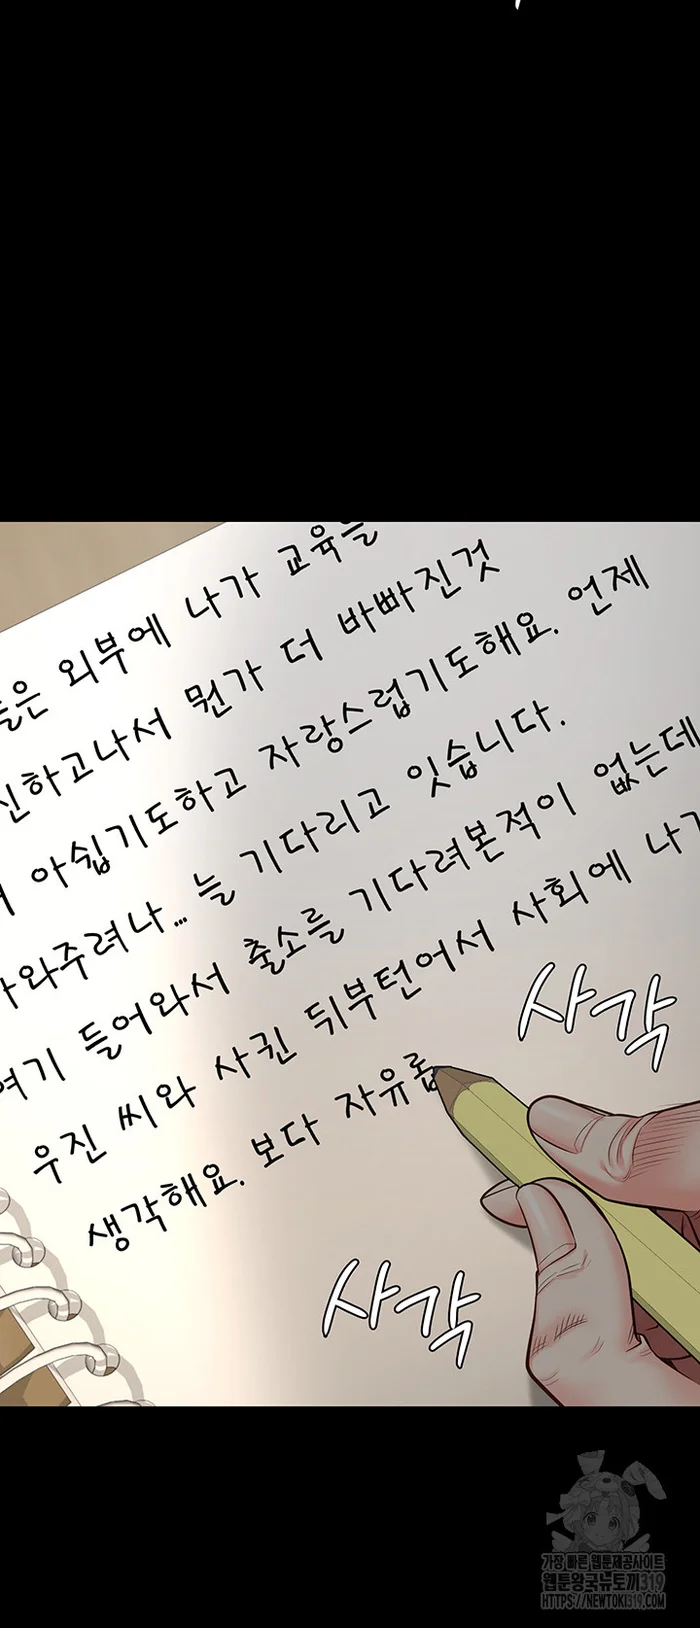 들은 외부에 나가 교육을
신하고나서 뭔가 더 바빠진것
아쉽기도하고 자랑스럽기도해요. 언제
와주려나... 늘 기다리고 잇습니다.
여기 들어와서 출소를 기다려본적이 없는데
우진 씨와 사귄 뒤부턴어서 사회에 나가
생각해요. 보다 자유롭
사각
사각
가장 빠른 웹툰제공사이트
웹툰왕국뉴토끼319
HTTPS://NEWTOKI319.COM